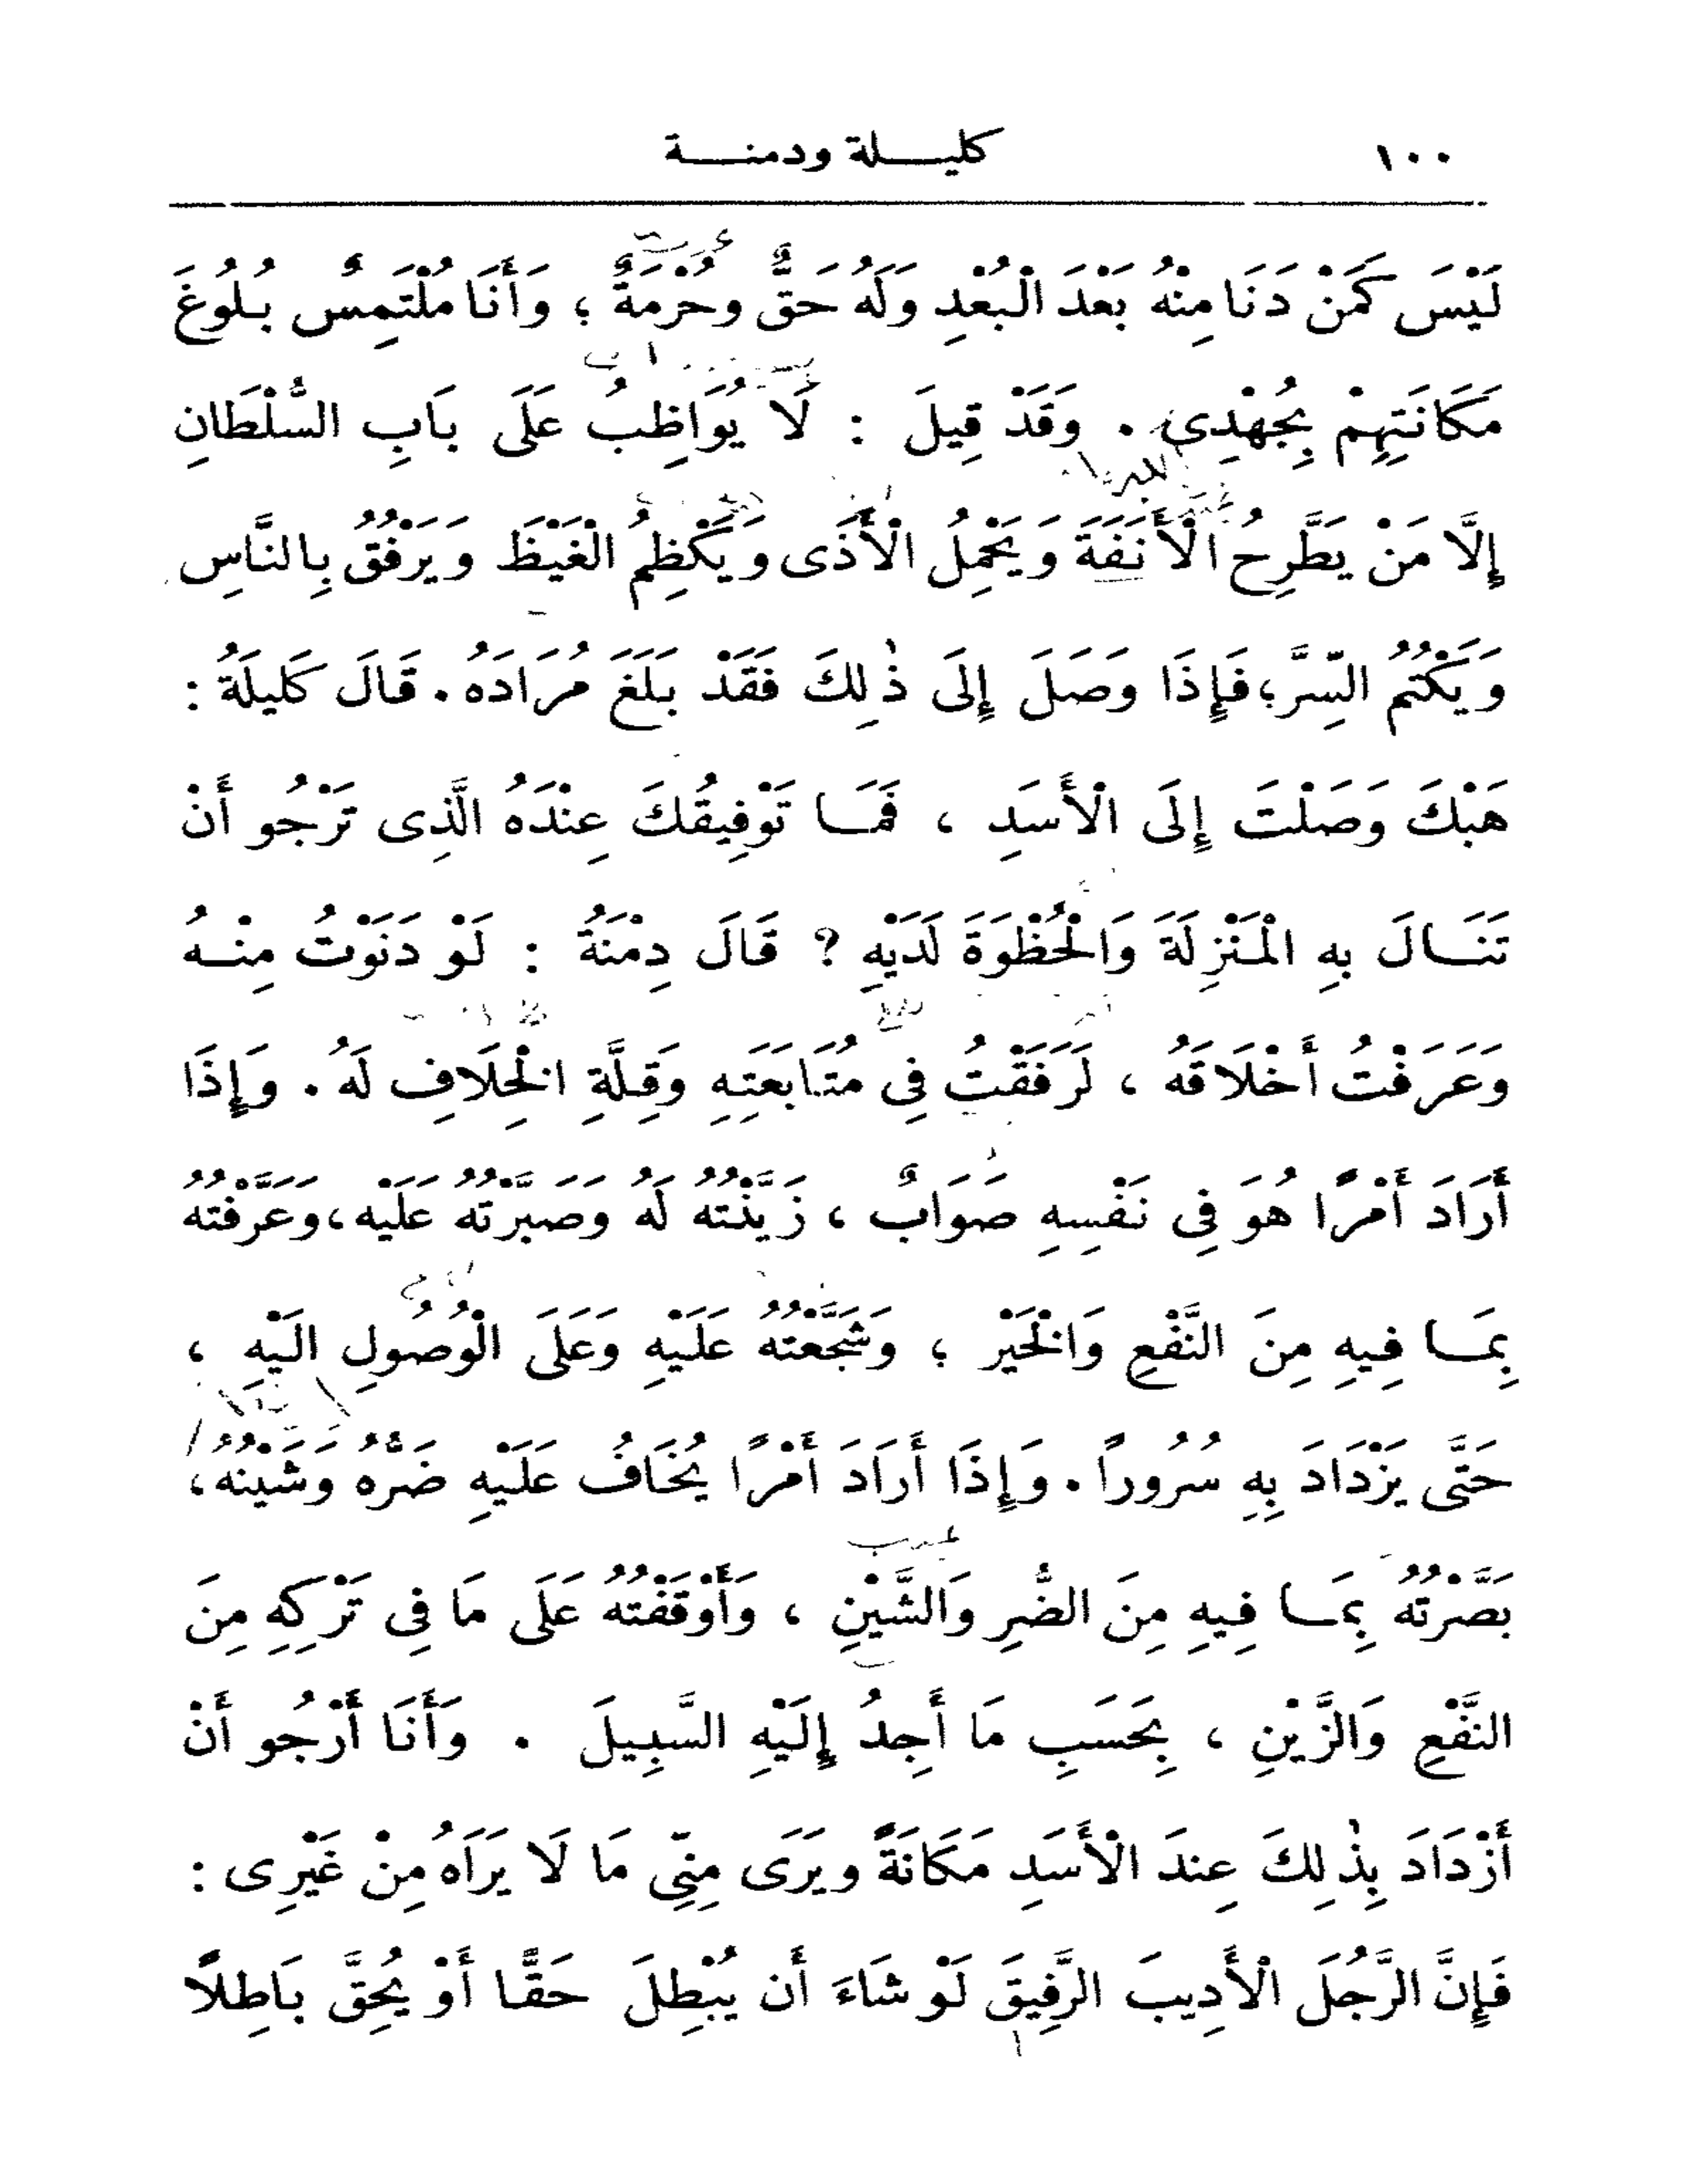 ١٠٠ كليلة ودمنة
لَيْسَ كَمَنْ دَنَا مِنْهُ بَعْدَ الْبُعْدِ وَلَهُ حَقٌّ وحُرْمَةٌ ؛ وَأَنَا مُلْتَمِسٌ بُلُوغَ
مَكَانَتِهِمْ بِجُهْدِى . وَقَدْ قِيلَ : لَا يُوَاظِبُ عَلَى بَابِ السُّلْطَانِ
إِلَّا مَنْ يَطَّرِحُ الْأَنَفَةَ وَيَحْمِلُ الْأَذَى وَيَكْظِمُ الْغَيْظَ وَيَرْفُقُ بِالنَّاسِ
وَيَكْتُمُ السِّرَّ؛ فَإِذَا وَصَلَ إِلَى ذٰلِكَ فَقَدْ بَلَغَ مُرَادَهُ . قَالَ كَلِيلَةُ :
هَبْكَ وَصَلْتَ إِلَى الْأَسَدِ ، فَمَا تَوْفِيقُكَ عِنْدَهُ الَّذِى تَرْجُو أَنْ
تَنَالَ بِهِ الْمَنْزِلَةَ وَالْحُظْوَةَ لَدَيْهِ ? قَالَ دِمْنَةُ : لَوْ دَنَوْتُ مِنْهُ
وَعَرَفْتُ أَخْلَاقَهُ ، لَرَفَقْتُ فِى مُتَابَعَتِهِ وَقِلَّةِ الْخِلَافِ لَهُ . وَإِذَا
أَرَادَ أَمْرًا هُوَ فِى نَفْسِهِ صَوَابٌ ، زَيَّنْتُهُ لَهُ وَصَبَّرْتُهُ عَلَيْهِ، وَعَرَّفْتُهُ
بِمَا فِيهِ مِنَ النَّفْعِ وَالْخَيْرِ ؛ وَشَجَّعْتُهُ عَلَيْهِ وَعَلَى الْوُصُولِ الَيْهِ ،
حَتَّى يَزْدَادَ بِهِ سُرُوراً . وَإِذَا أَرَادَ أَمْرًا يُخَافُ عَلَيْهِ ضَرُّهُ وَشَيْنُهُ ،
بَصَّرْتُهُ بِمَا فِيهِ مِنَ الضُّرِ وَالشَّيْنِ ، وَأَوْقَفْتُهُ عَلَى مَا فِى تَرْكِهِ مِنَ
النَّفْعِ وَالزَّيْنِ ، بِحَسَبِ مَا أَجِدُ إِلَيْهِ السَّبِيلَ . وَأَنَا أَرْجُو أَنْ
أَزْدَادَ بِذٰلِكَ عِندَ الْأَسَدِ مَكَانَةً ويَرَى مِنِّى مَا لَا يَرَاهُ مِنْ غَيْرِى :
فَإِنَّ الرَّجُلَ الْأَدِيبَ الرَّفِيقَ لَوْ شَاءَ أَن يُبْطِلَ حَقًّا أَوْ يُحِقَّ بَاطِلًا